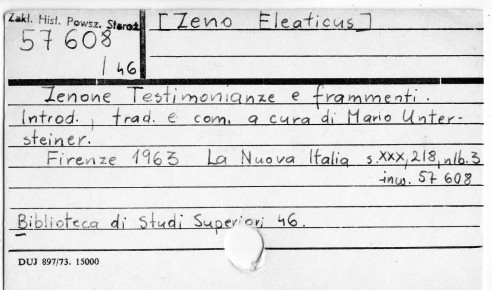 Zakł. Hist. Powsz. Staroż
[Zeno Eleaticus]
57 608
/ 46
Zenone Testimonianze e frammenti.
Introd., trad. e com. a cura di Mario Unter-
steiner.
Firenze 1963 La Nuova Italia s. XXX, 218, nlb. 3
inw. 57 608
Biblioteca di Studi Superiori 46.
DUJ 897/73. 15000